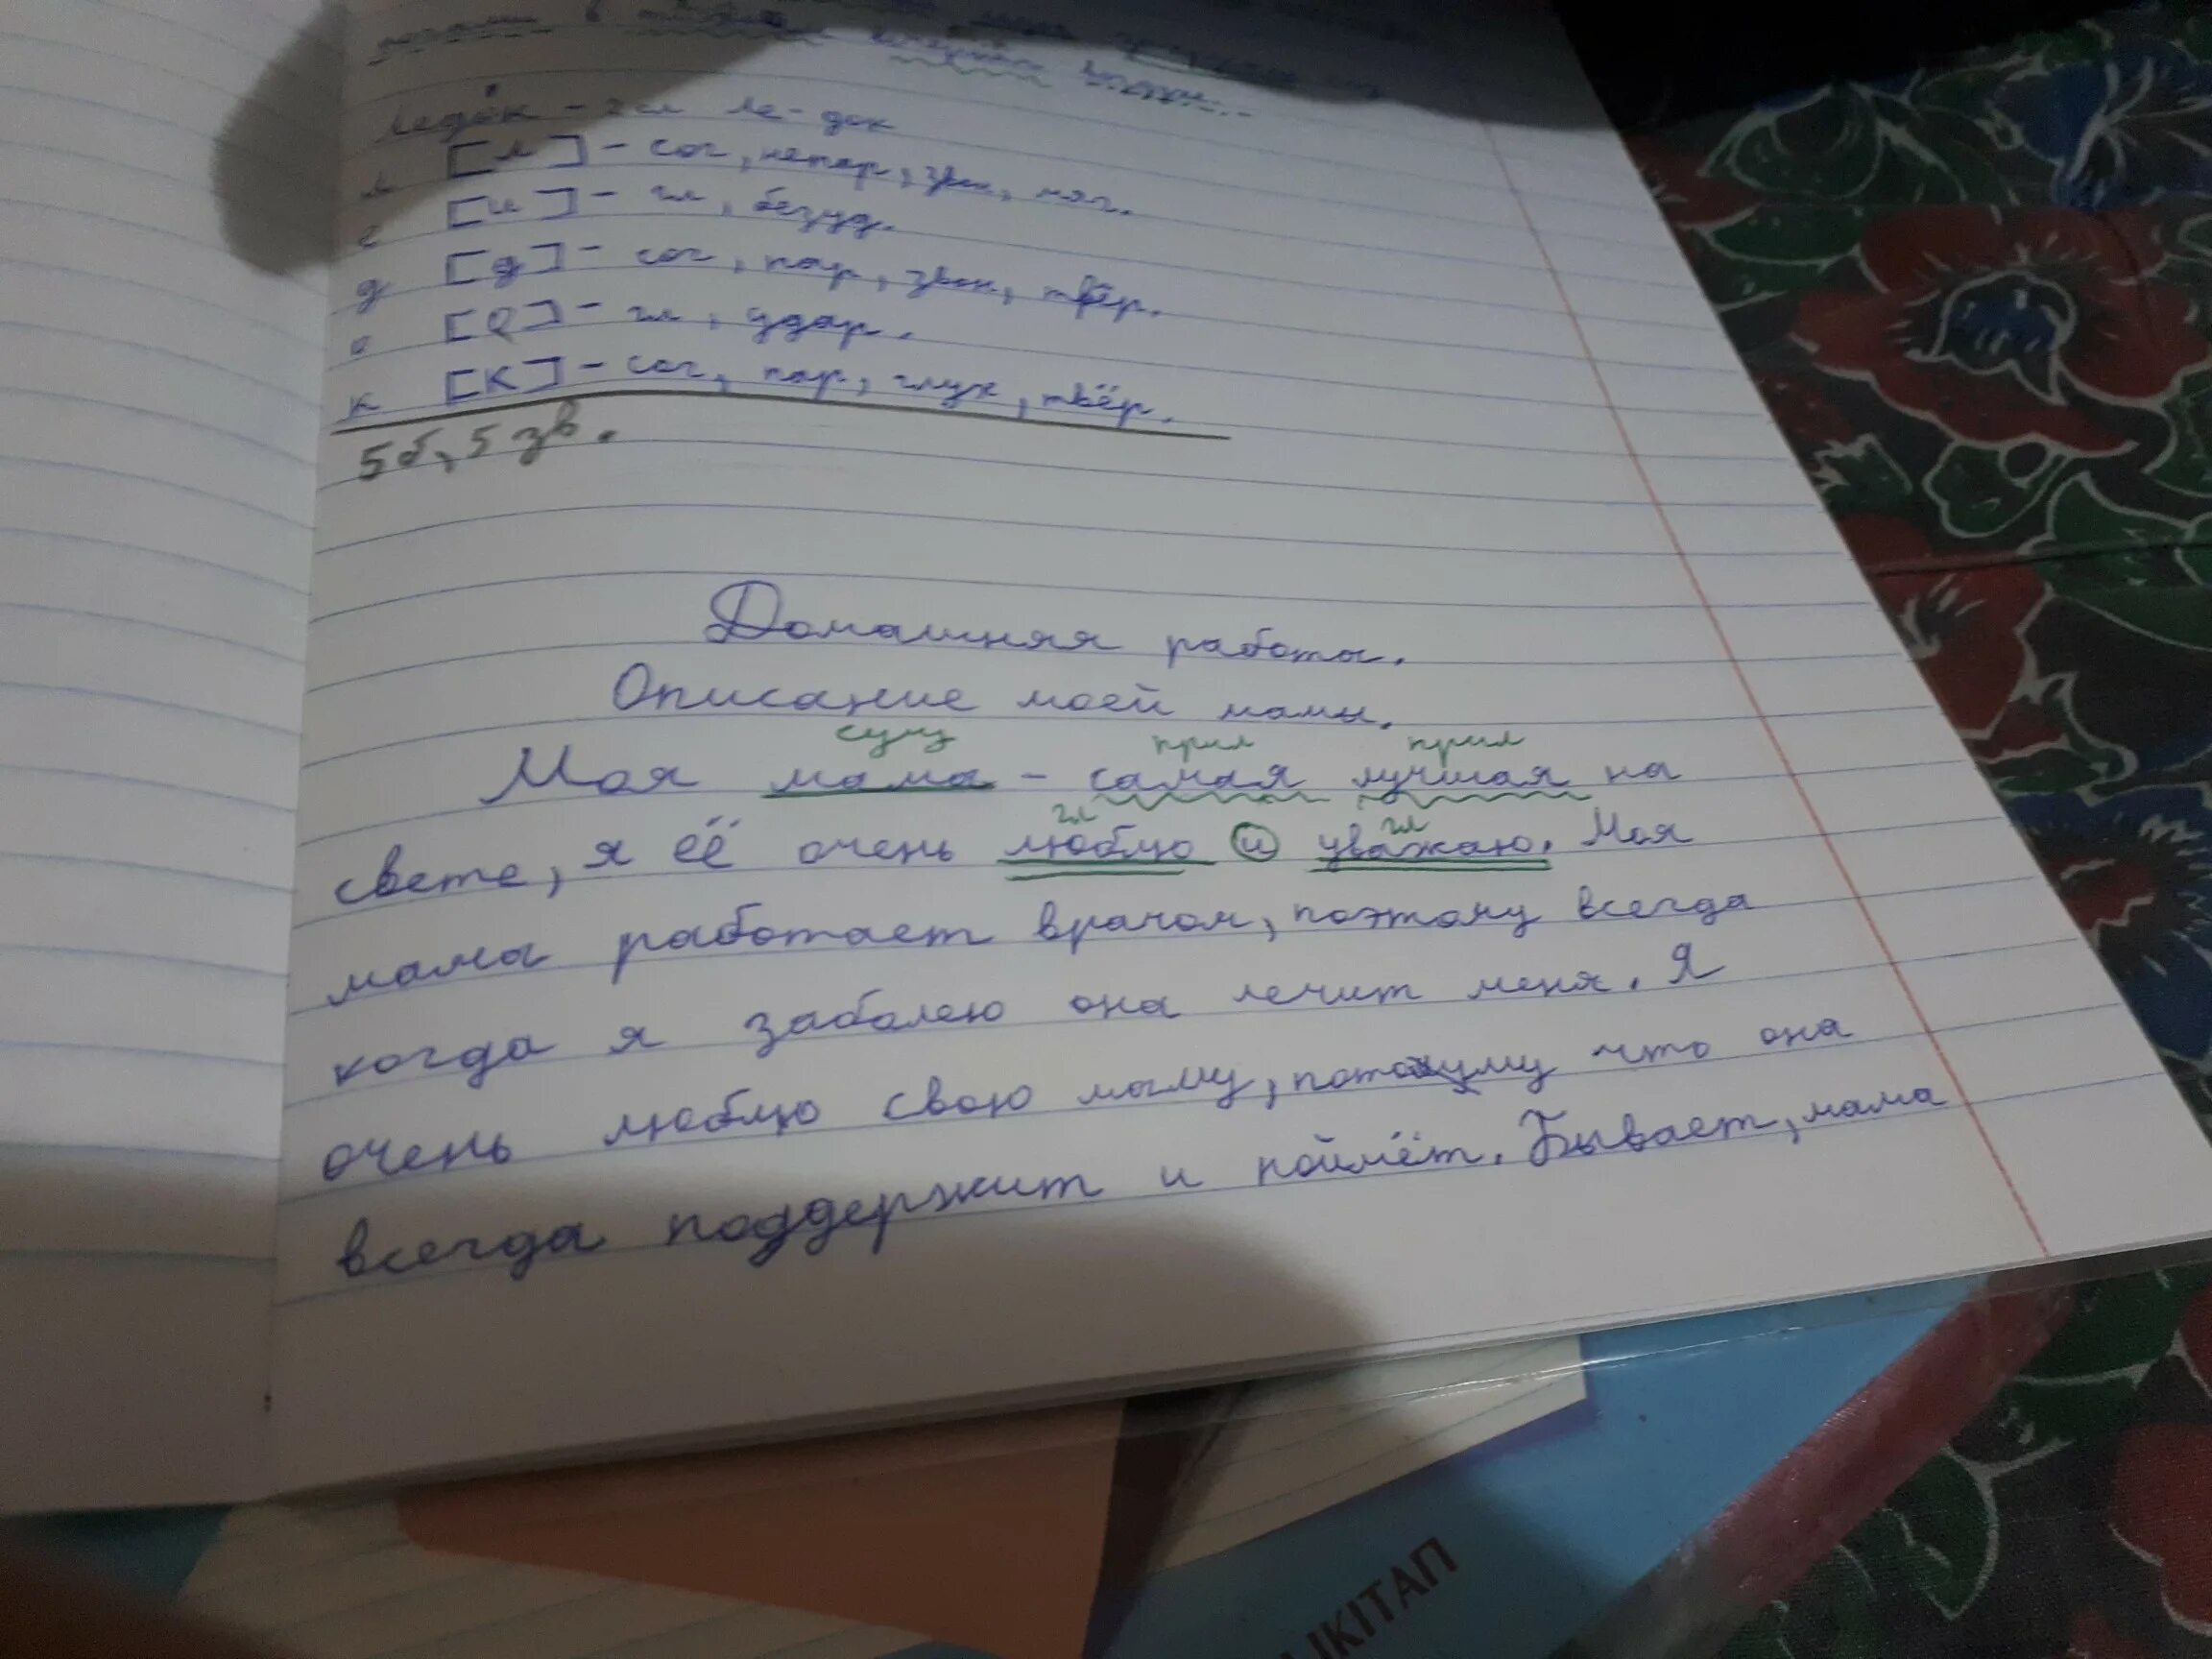 Ледок - 2 сл ле-док
л [л] - сог, непар, звон, мяг.
е [и] - гл, безуд.
д [д] - сог, пар, звон, твёр.
о [о] - гл, удар.
к [к] - сог, пар, глух, твёр.
5 б, 5 зв.
Домашняя работы.
Описание моей мамы.
сущ прил прил
Моя мама - самая лучшая на
гл гл
свете, я её очень люблю и уважаю. Моя
мама работает врачом, поэтому всегда
когда я заболею она лечит меня. Я
очень люблю свою маму, потому что она
всегда поддержит и поймёт. Бывает, мама
ІКІТАП